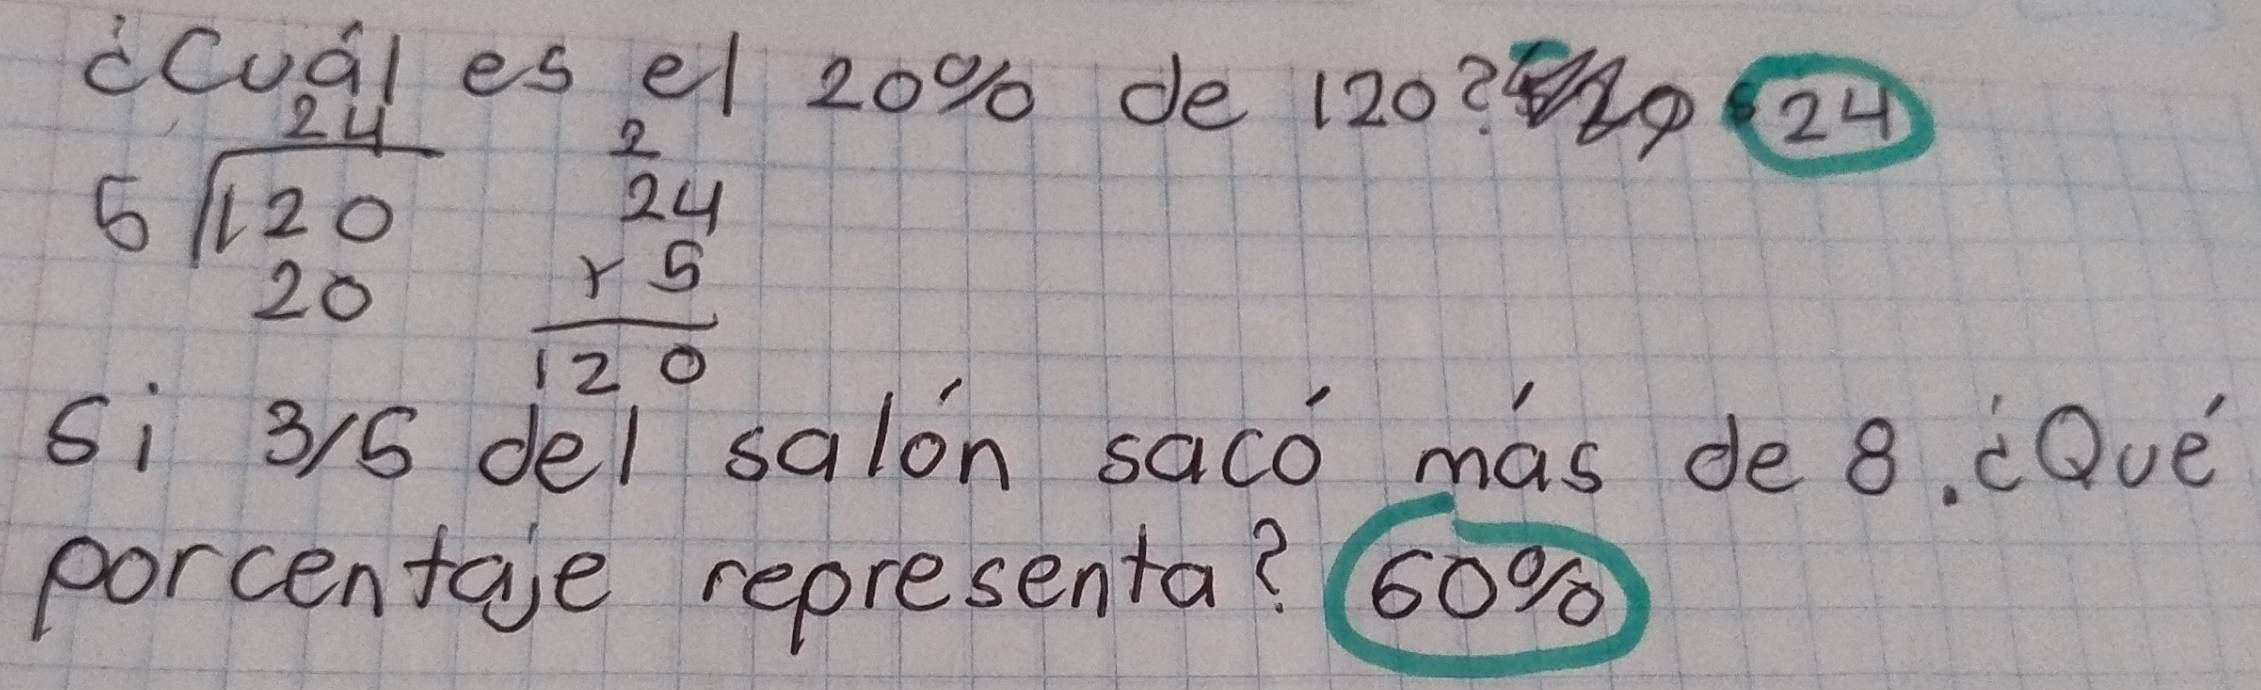 ¿Cuál es el 20% de 120? 24
24
5 120
20
2
24
x 5
120
Si 3/5 del salón sacó más de 8. ¿Qué
porcentaje representa? 60%